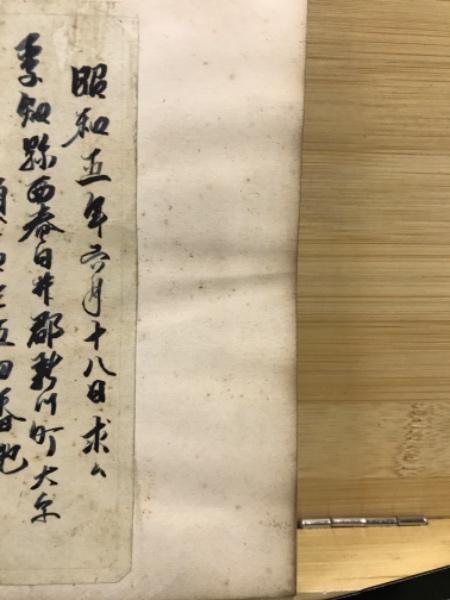 昭和五年六月十八日求ム
愛知縣西春日井郡新川町大字
五四番地